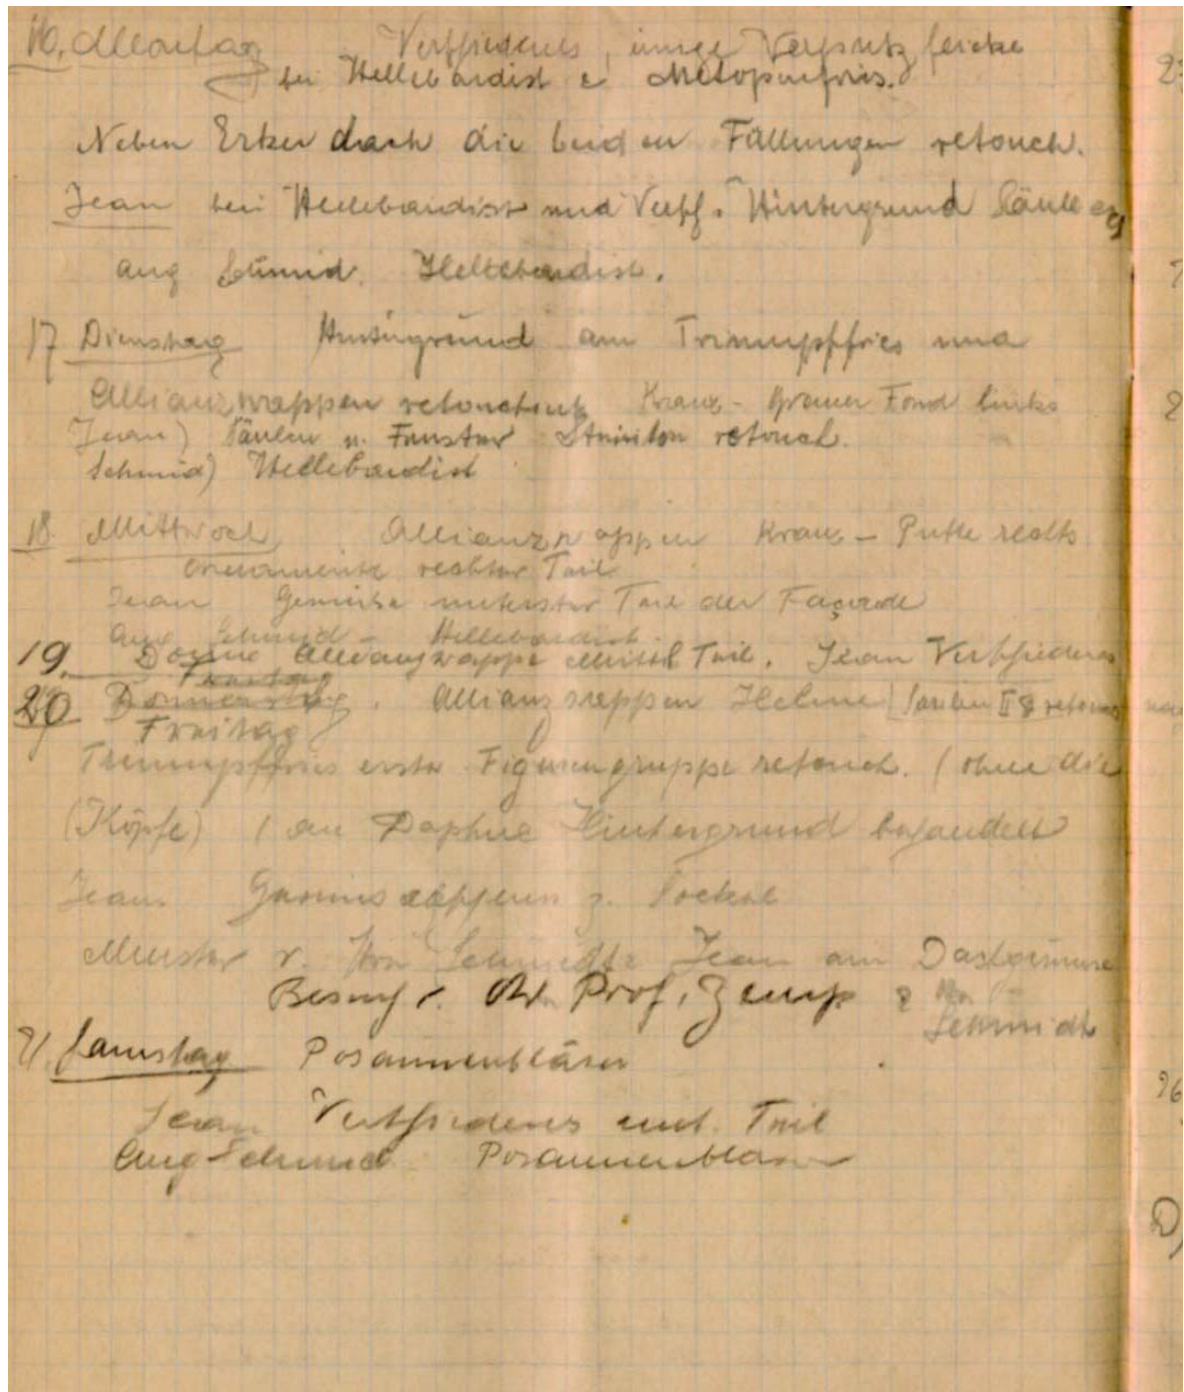 16. Montag Verschiedenes, einige Verputzflicke
bei Hellebardist & Metopenfries.
Neben Erkerdach die beiden Füllungen retouch.
Jean bei Hellebardist und Versch. Hintergrund Säulen
Aug Schmid. Hellebardist.
17 Dienstag Hintergrund am Triumpffries und
Allianzwappen retouchiert Kranz - Grauer Fond links
Jean) Säulen u. Fenster retouch.
Schmid) Hellebardist
18. Mittwoch Allianzwappen Kranz - Putte rechts
Ornamente rechter Teil
Jean Gesimse unterster Teil der Façade
Aug Schmid - Hellebardist.
19. Donne Allianzwappe Mittl Teil. Jean Verschiedenes
Freitag
20 Donnerstag. Allianzwappen Helme
Freitag
Triumpffries erste Figurengruppe retouch. (ohne die
(Köpfe) / an Daphne Hintergrund behandelt
Jean Sockel
Muster v. Hrn Schmidt Jean am
Besuch v. Hr. Prof. Zemp & Hr.
Schmidt
21. Samstag Posaunenbläser
Jean Verschiedenes unt. Teil
Aug Schmid Posaunenbläser